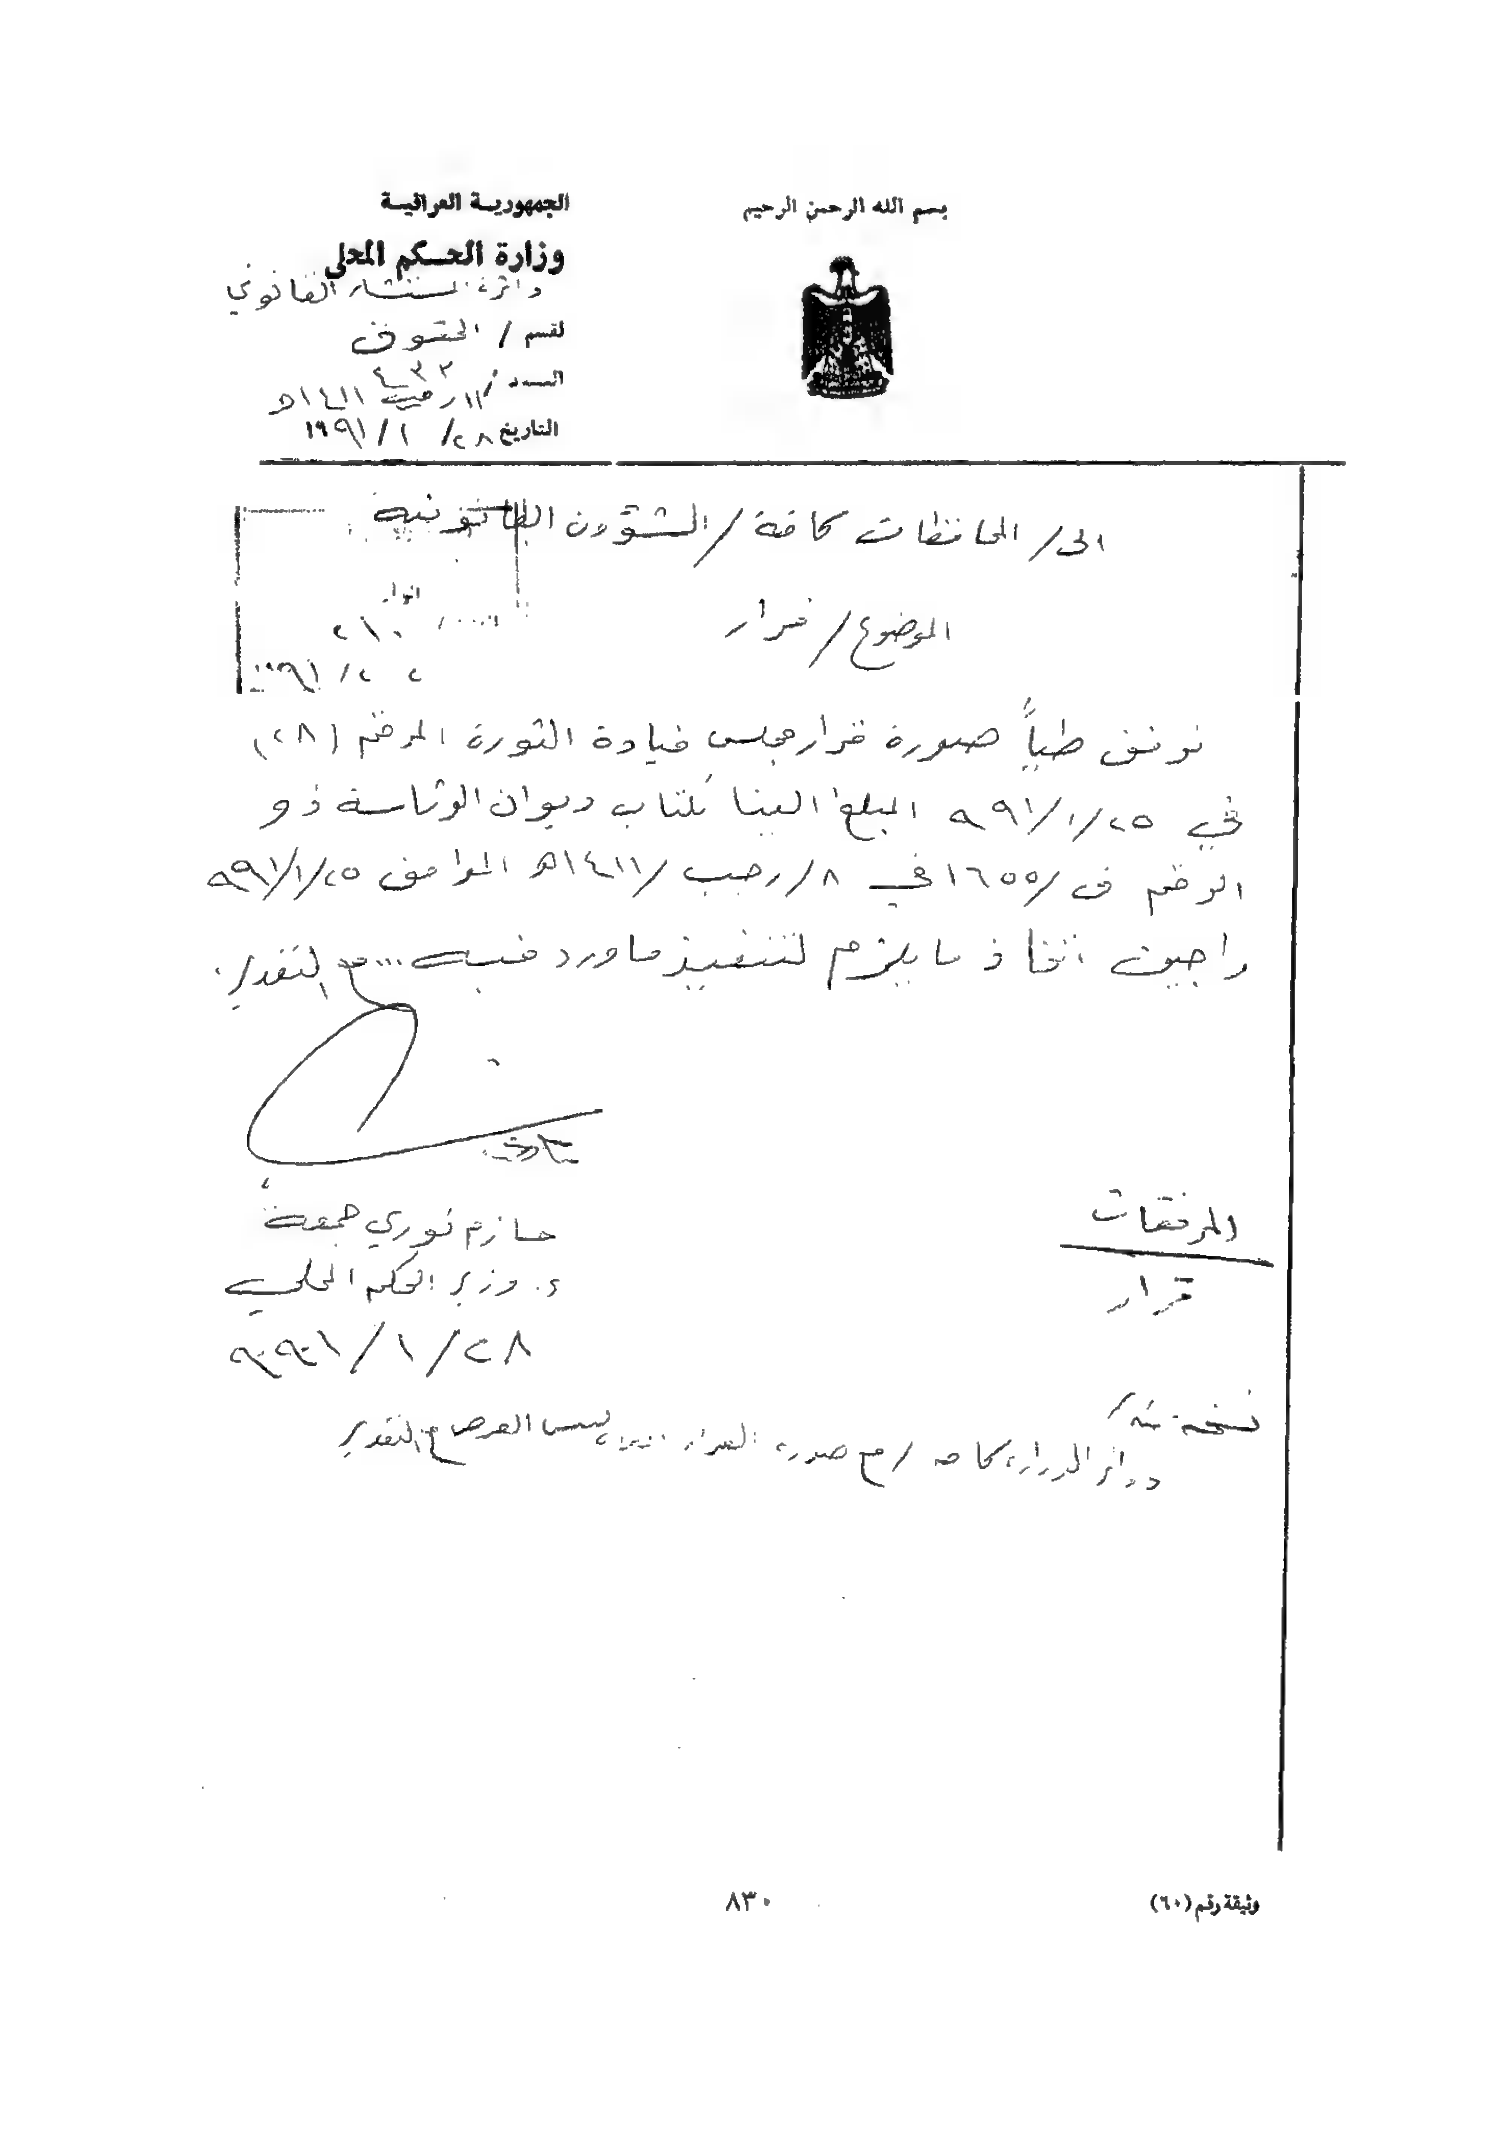 بسم الله الرحمن الرحيم
الجمهورية العراقية
وزارة الحكم المحلي
دائرة المستشار القانوني
لقسم / الحقوق
العدد / ٤٣٢
١١/ رجب / ١٤١١هـ
التاريخ ٢٨/ ١ / ١٩٩١
الى / المحافظات كافة / الشؤون القانونية
الموضوع / قرار
نرفق طياً صورة قرار مجلس قيادة الثورة المرقم (٢٨)
في ٩٩١/١/٢٥ المبلغ الينا بكتاب ديوان الرئاسة ذو
الرقم ق/١٦٥٥ في ٨/رجب/١٤١١هـ الموافق ٩٩١/١/٢٥
راجين اتخاذ ما يلزم لتنفيذ ما ورد فيه ... مع التقدير.
حازم نوري جمعة
ء. وزير الحكم المحلي
٩٩١/١/٢٨
المرفقات
قرار
نسخة منه /
دوائر الوزارة كافة / مع صورة القرار لنفس الغرض مع التقدير
وثيقة رقم (٦٠)
٨٣٠